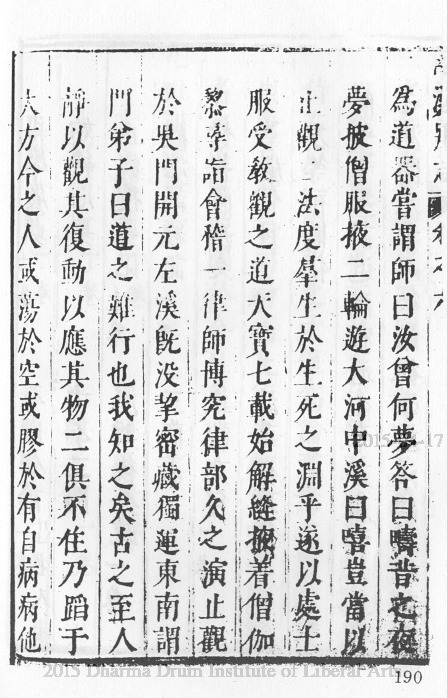 為道器嘗謂師曰汝曾何夢答曰疇昔之夜
夢披僧服掖二輪遊大河中溪曰嘻豈當以
止觀二法度羣生於生死之淵乎遂以處士
服受教觀之道天寶七載始解縫掖着僧伽
黎尋詣會稽一律師博究律部久之演止觀
於吳門開元左溪旣没挈密藏獨運東南謂
門弟子曰道之難行也我知之矣古之至人
靜以觀其復動以應其物二俱不住乃蹈于
大方今之人或蕩於空或膠於有自病病他
2015 Dharma Drum Institute of Liberal Arts
190